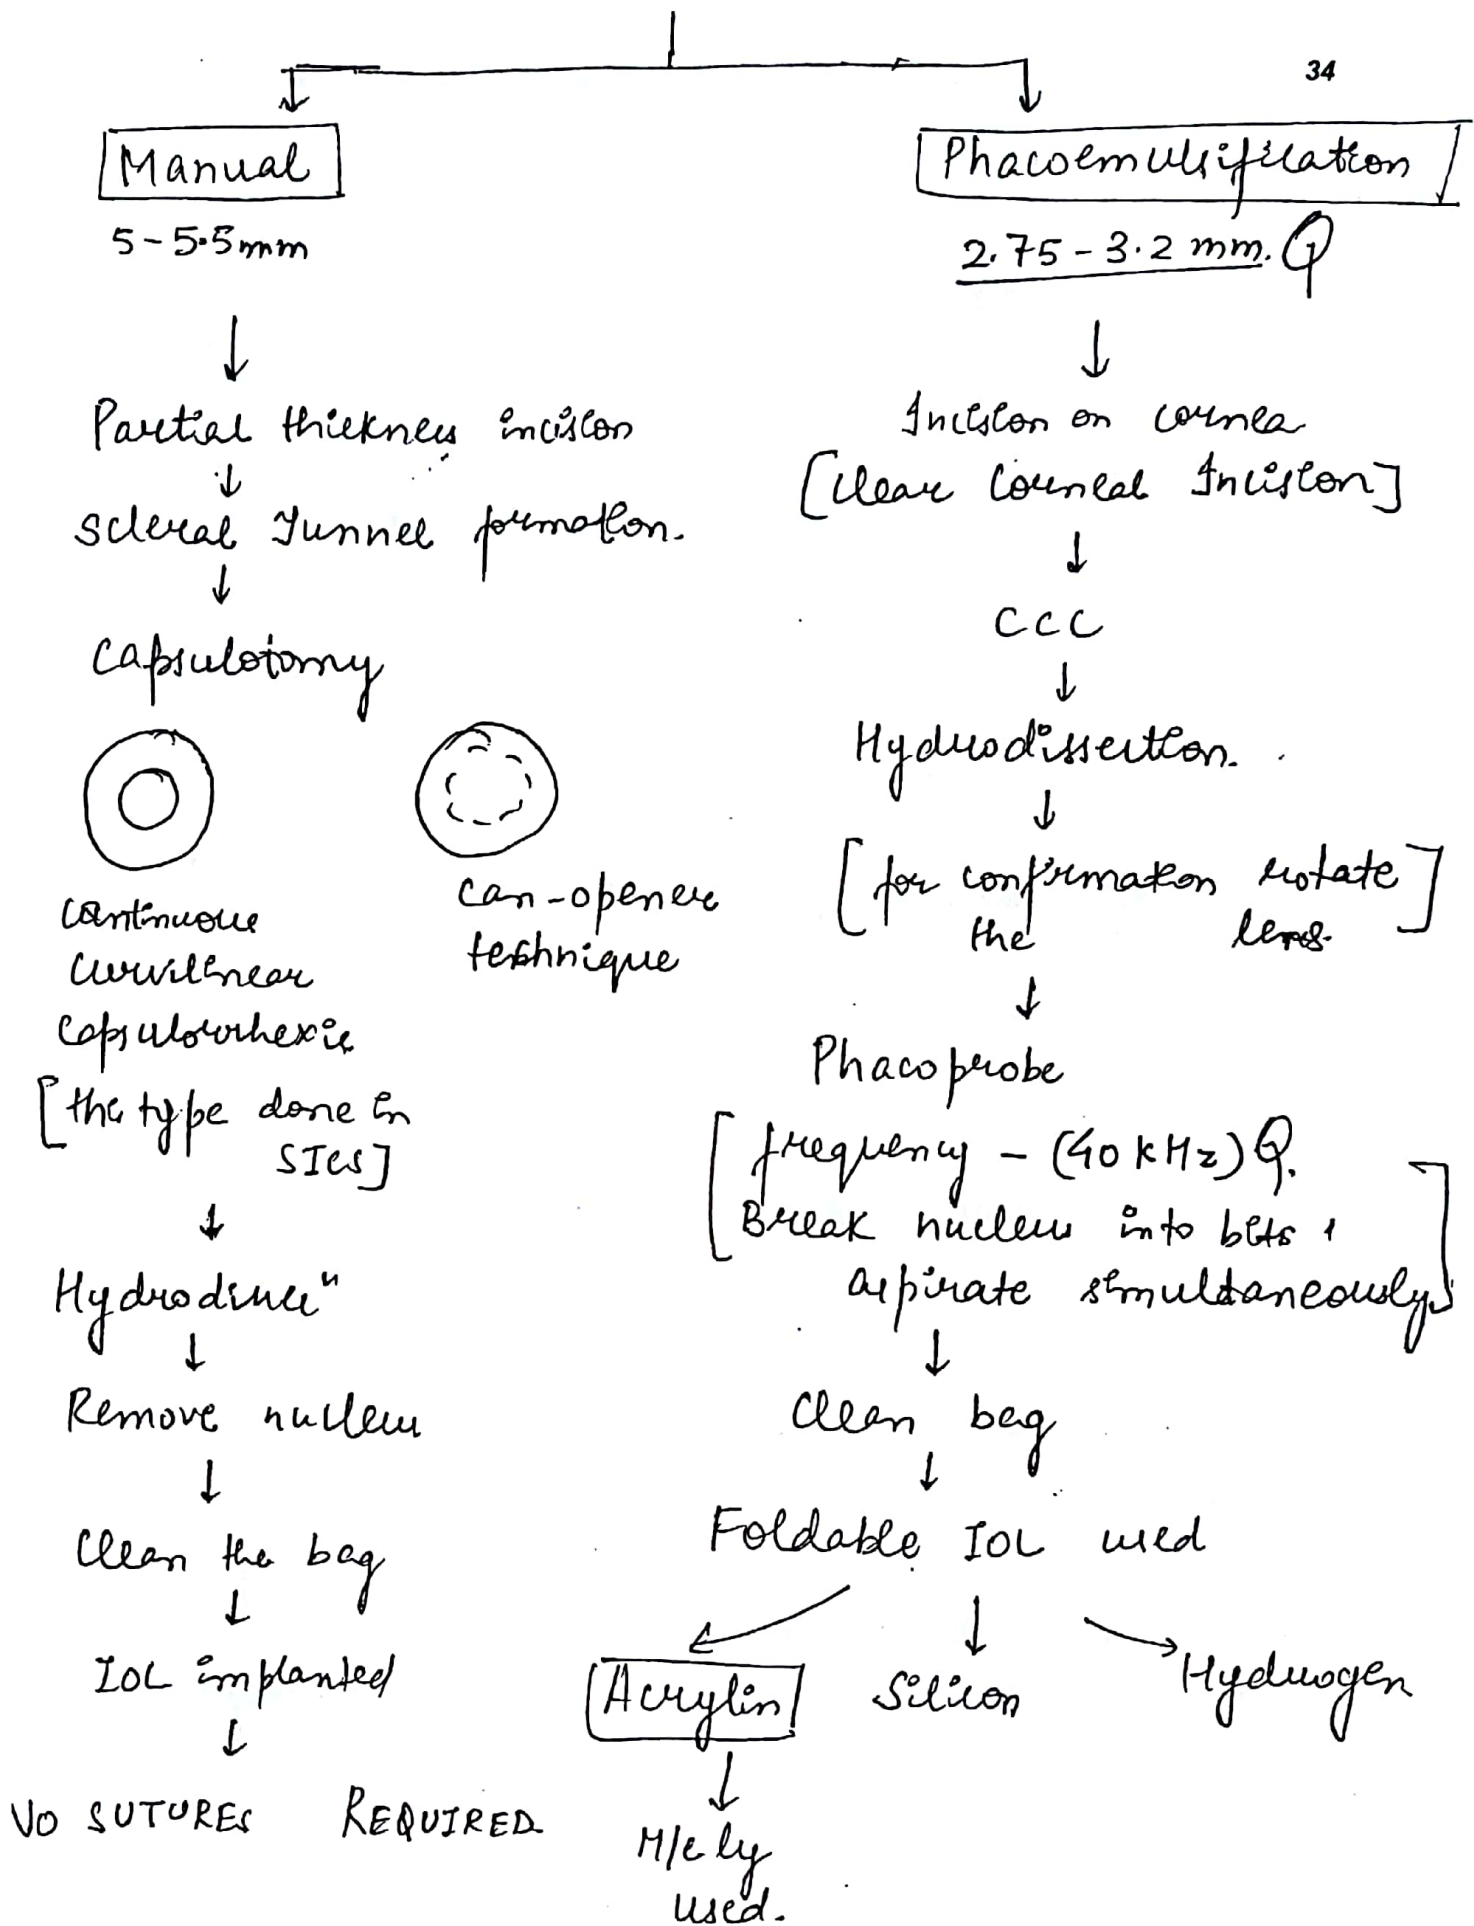 34
Manual
5-5.5mm
Partial thickness incision
Scleral Tunnel formation.
Capsulotomy
Continuous
Curvilinear
Capsulorrhexis
[the type done in
SICS]
can-opener
technique
Remove nucleus
Clean the bag
IOL implanted
NO SUTURES REQUIRED
Phacoemulsification
2.75-3.2 mm. Q
Incision on cornea
[Clear Corneal Incision]
CCC
Hydrodissection.
[for confirmation rotate]
the lens.
Phacoprobe
[frequency - (40 kHz) Q.
Break nucleus into bits &
aspirate simultaneously]
Clean bag
Foldable IOL used
Acrylin Silicon Hydrogen
M/c ly
used.